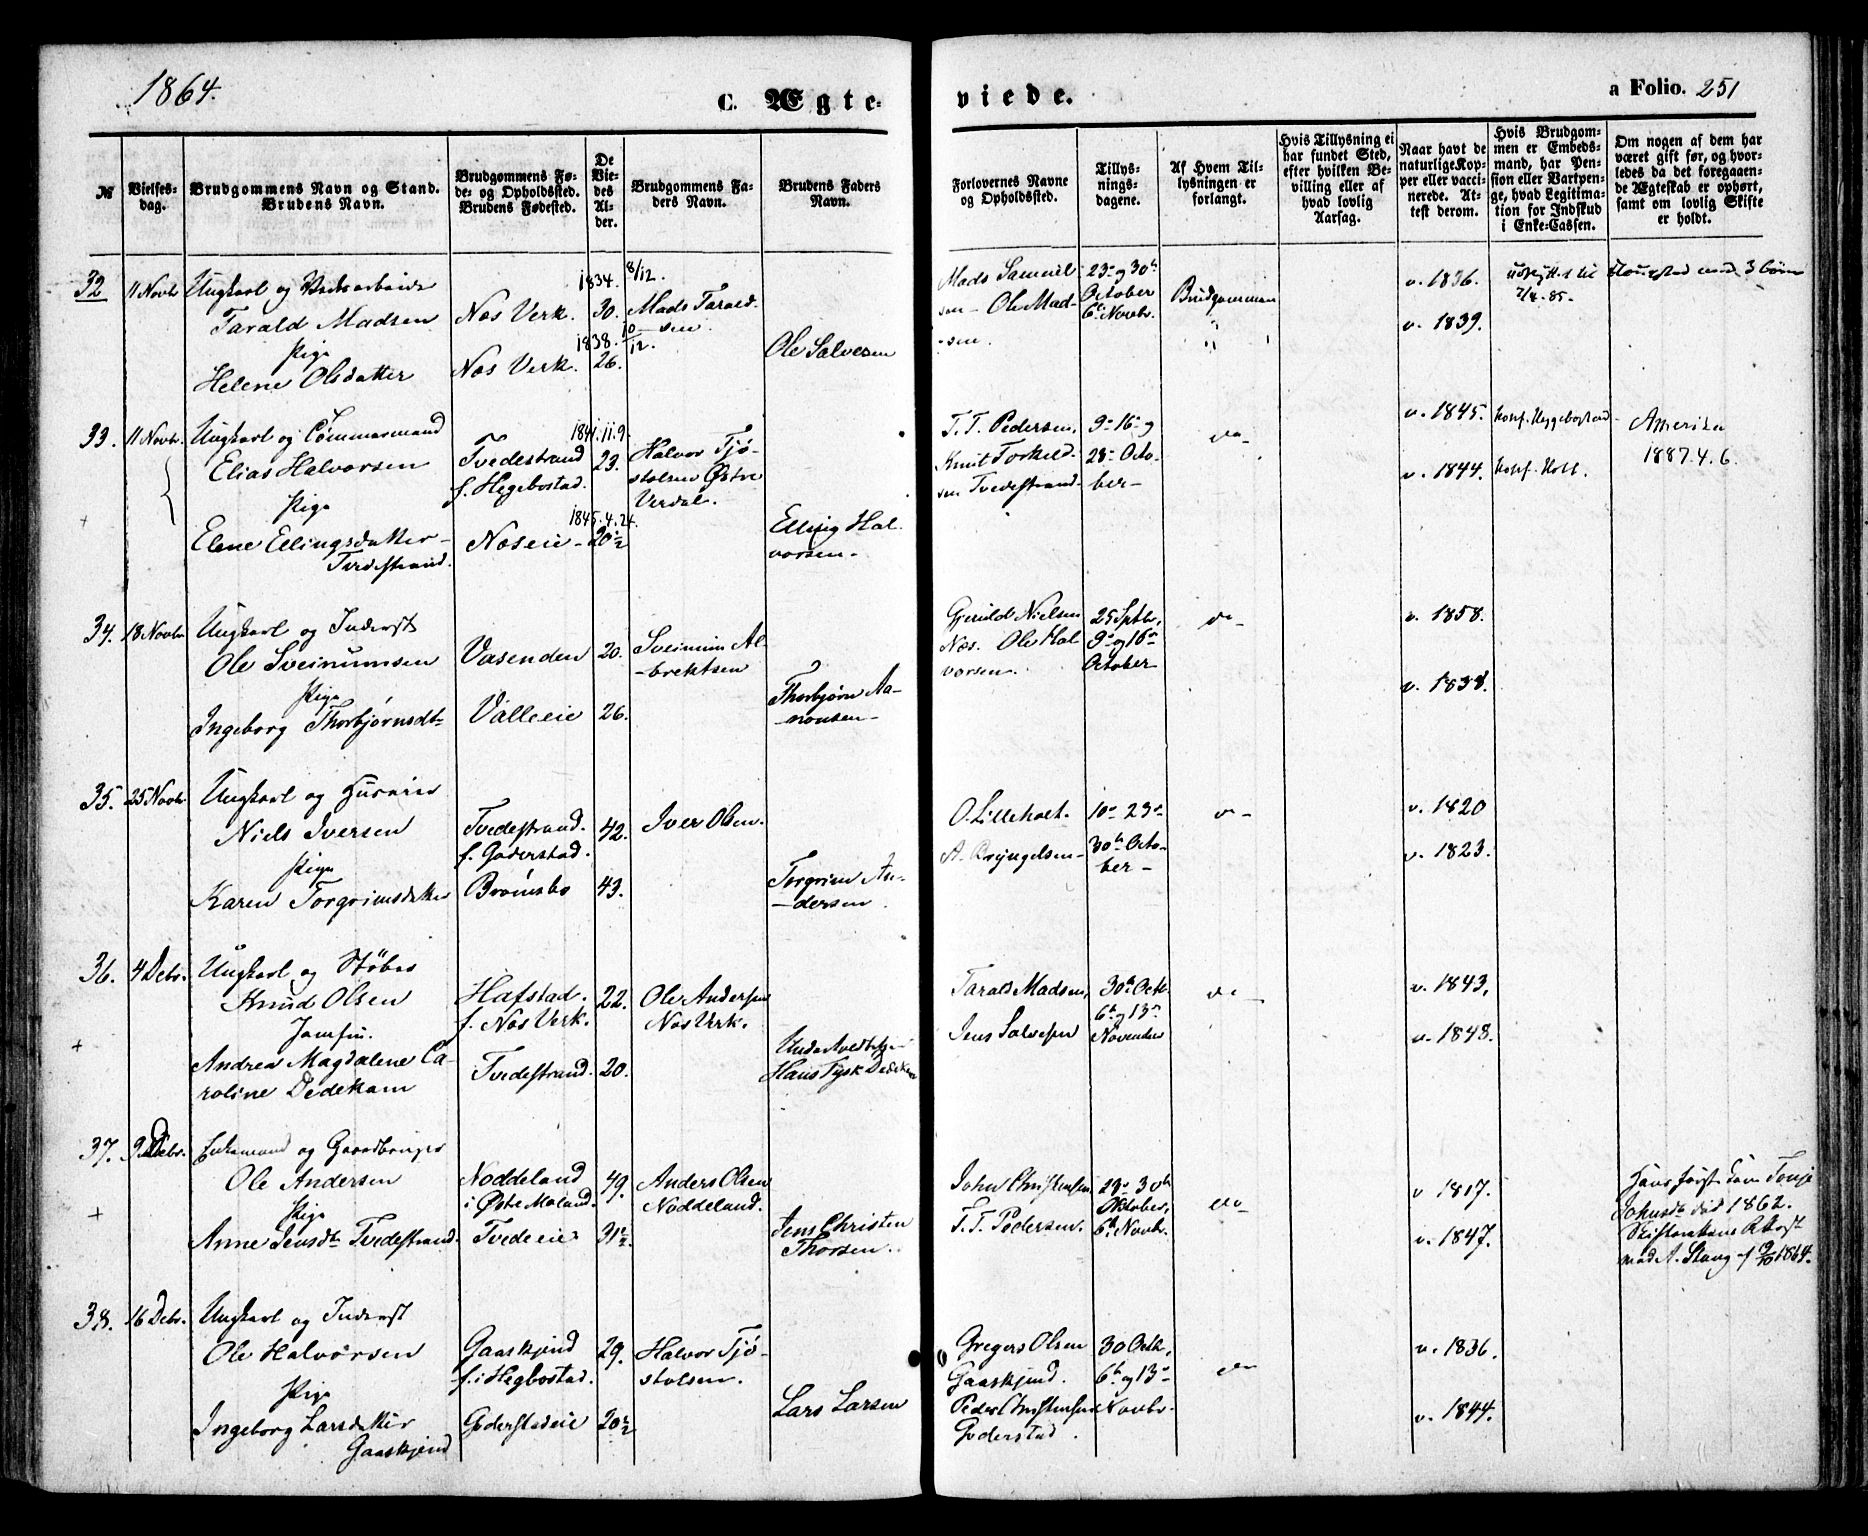 1864.
C. Ægte-
viede.
a Folio. 251
№
Vielses-
dag.
Brudgommens Navn og Stand.
Brudens Navn.
Brudgommens Fø-
de- og Opholdssted.
Brudens Fødested.
De
Vie-
des
Al-
der.
Brudgommens Fa-
ders Navn.
Brudens Faders
Navn.
Forlovernes Navne
og Opholdssted.
Tillys-
nings-
dagene.
Af Hvem Til-
lysningen er
forlangt.
Hvis Tillysning ei
har fundet Sted,
efter hvilken Be-
villing eller af
hvad lovlig
Aarsag.
Naar havt de
naturlige Kop-
per eller vacci-
nerede. At-
test derom.
Hvis Brudgom-
men er Embeds-
mand, har Pen-
sion eller Vartpen-
ge, hvad Legitima-
tion for Indskud
i Enke-Cassen.
Om nogen af dem har
været gift før, og hvor-
ledes da det foregaaen-
de Ægteskab er ophørt,
samt om lovlig Skifte
er holdt.
32 11 Novbr Ungkarl og
Tarald Madsen
Pige
Helene Olsdatter
Næs Verk.
Næs Verk.
1834. 8/12.
30.
1838. 10/12.
26.
Mads Tarald-
sen.
Ole Salvesen
Mads Samuel-
sen - Ole Mad-
sen.
23de og 30te
October
6te Novbr.
Brudgommen
"
v. 1836.
v. 1839.
7/4. 85.
med 3 børn
33. 11 Novbr. Ungkarl og Tømmermand
Elias Halvorsen
Pige
Elene Ellingsdatter
Tvedestrand.
Tvedestrand
f. Hegebostad.
Næseie
1841.11.9.
23.
1845.4.24.
20½
Halvor Tjø-
stolsen Østre
Verdal.
Elling Hal-
vorsen
T. T. Pedersen.
Knut Torkild-
sen Tvedestrand
9de 16de og
23de Octo-
ber
do
v. 1845.
v. 1844.
Konf. Heggebostad
Konf. Holt.
Amerika
1887.4.6.
34. 18 Novbr Ungkarl og Inderst
Ole Sveinumsen
Pige
Ingeborg Thorbjørnsdt
Vasenden
Valleeie
20.
26.
Sveinum Al-
brektsen
Thorbjørn Aa-
nonsen
Nielsen
Næs. Ole Hal-
vorsen.
25 Septbr,
9de og 16de
October
do
v. 1858.
v. 1838.
35. 25 Novbr Ungkarl og Huseier
Niels Iversen
Pige
Karen Torgrimsdatter
Tvedestrand.
f. Goderstad.
Bromsbo
42.
43.
Iver Olsen.
Torgrim An-
dersen
O. Lilleholt.
A. Bryngelsen
10de 23de
30te Octo-
ber
do
v. 1820
v. 1823.
36. 4 Debr. Ungkarl og Støber
Knud Olsen
Jomfru.
Andrea Magdalene Ca-
roline Dedekam
Hafstad.
f. Næs Verk.
Tvedestrand.
22.
20.
Ole Andersen
Næs Verk.
Hans Tysk Dedekam
Tarald Madsen,
Jens Salvesen
30te Octb.
6te og 13de
November
do
v. 1843.
v. 1848.
37. 9 Debr. Enkemand og Gaardbruger
Ole Andersen
Pige
Anne Jensdt Tvedestrand.
Noddeland
i Østre Moland.
Tvedeeie
49.
31½
Anders Olsen
Noddeland.
Jens Christen
Thorsen.
John Christensen
T. T. Pedersen.
23de 30te
Oktober,
6te Novbr.
do
v 1817.
v. 1847.
Hans første Kone Tonje
Johnsdt død 1862.
Skifterettens Attest
med A. Stang af 9/10 1864.
38. 16 Debr. Ungkarl og Inderst
Ole Halvorsen
Pige
Ingeborg Larsdatter
Gaaskjend
Gaaskjend
f. i Hegbostad.
Goderstadeie
29.
20½
Halvor Tjø-
stolsen.
Lars Larsen
Gregers Olsen
Gaaskjend.
Peder Christensen
Goderstad.
30 Octb,
6te og 13de
Novbr.
do
v. 1836.
v. 1844.